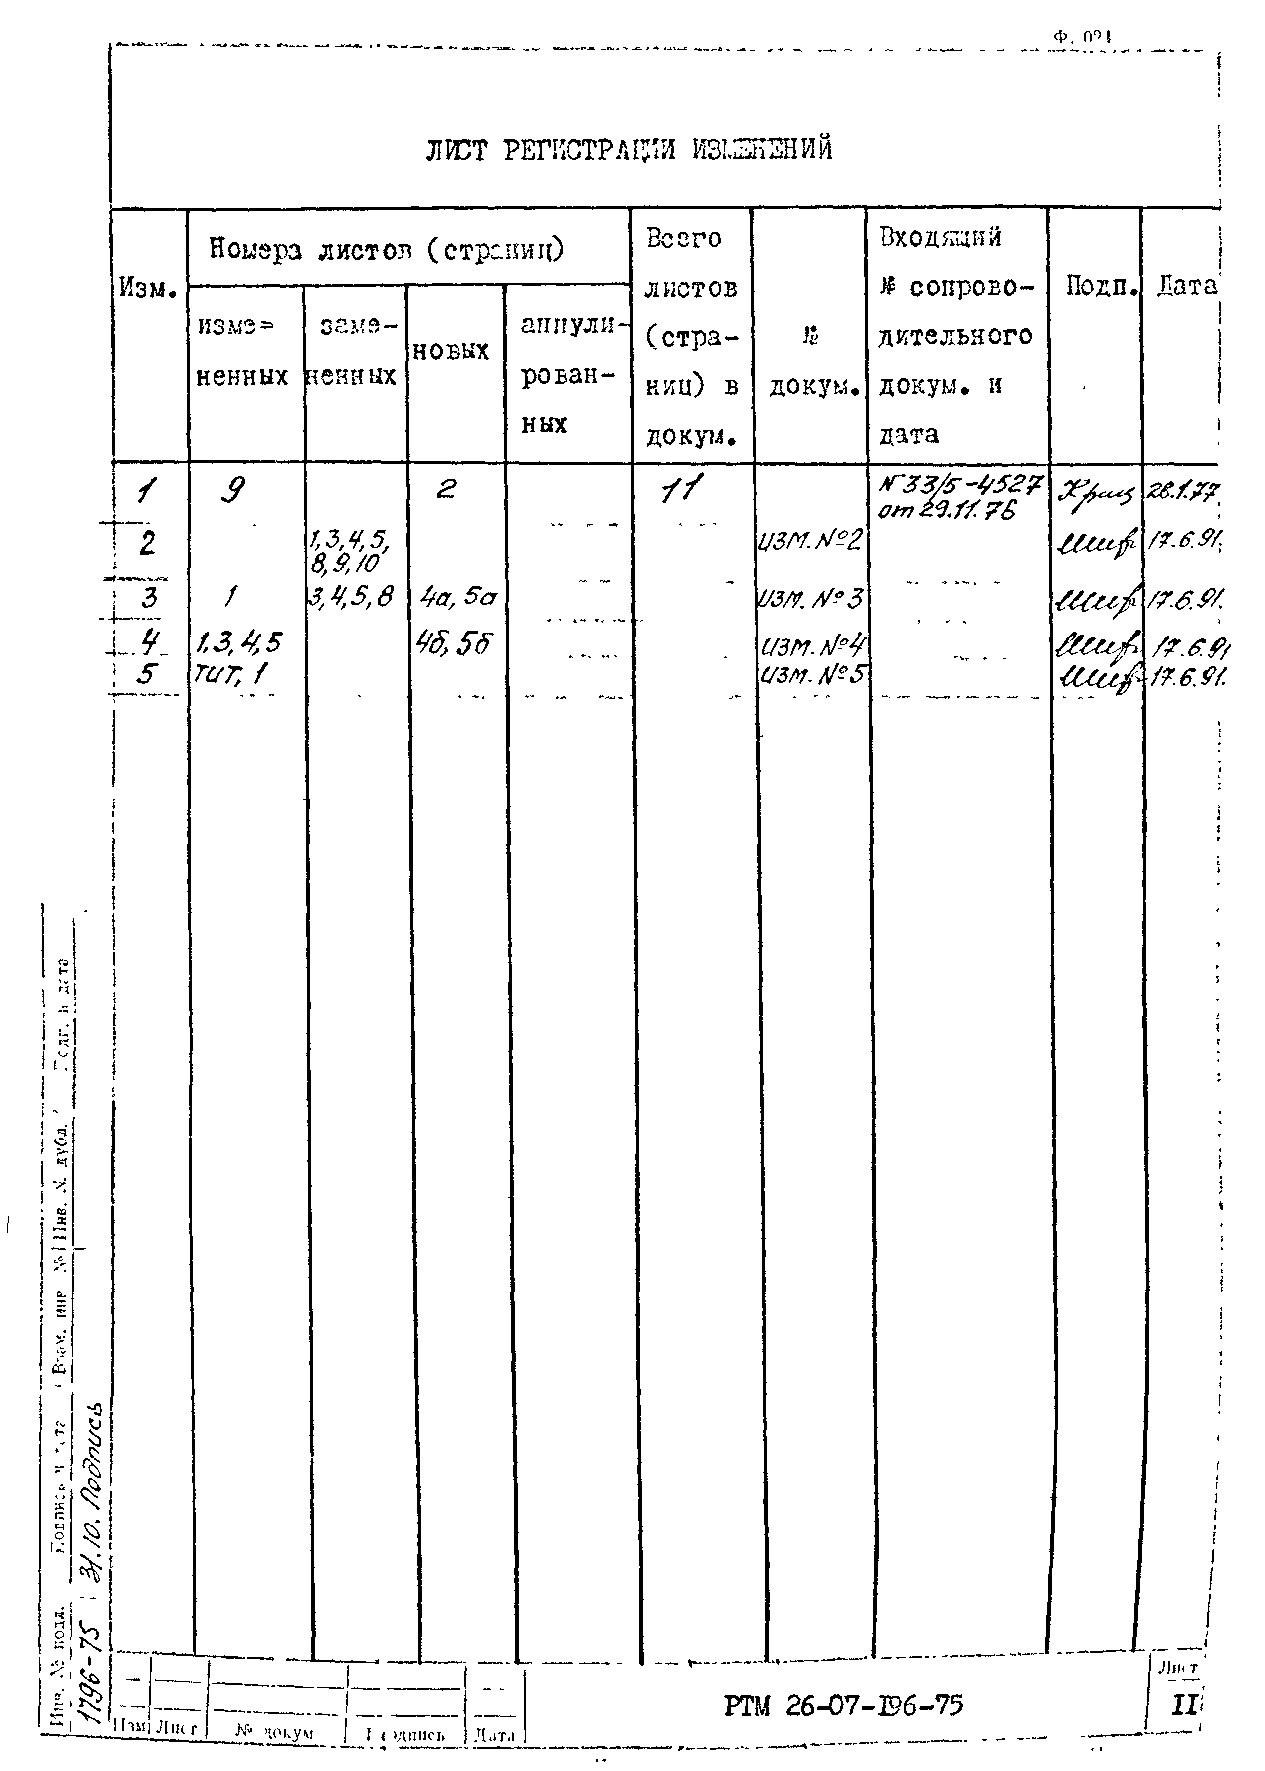 Ф. 021
ЛИСТ РЕГИСТРАЦИИ ИЗМЕНЕНИЙ
Изм.
Номера листов (страниц)
изме-
ненных
заме-
ненных
новых
аннули-
рован-
ных
Всего
листов
(стра-
ниц) в
докум.
№
докум.
Входящий
№ сопрово-
дительного
докум. и
дата
Подп.
Дата
1 9 2 11 N 33/5-4527 28.1.77
от 29.11.76
2 1,3,4,5, изм. №2 17.6.91.
8,9,10
3 1 3,4,5,8 4а, 5а изм. №3 17.6.91.
4 1,3,4,5 4б, 5б изм. №4 17.6.91
5 тит, 1 изм. №5 17.6.91.
Инв. № подл.
Подпись и дата
Взам. инв. №
Инв. № дубл.
Подп. и дата
1796-75
31.10. Подпись
Изм Лист № докум Подпись Дата
РТМ 26-07-I96-75
Лист
II